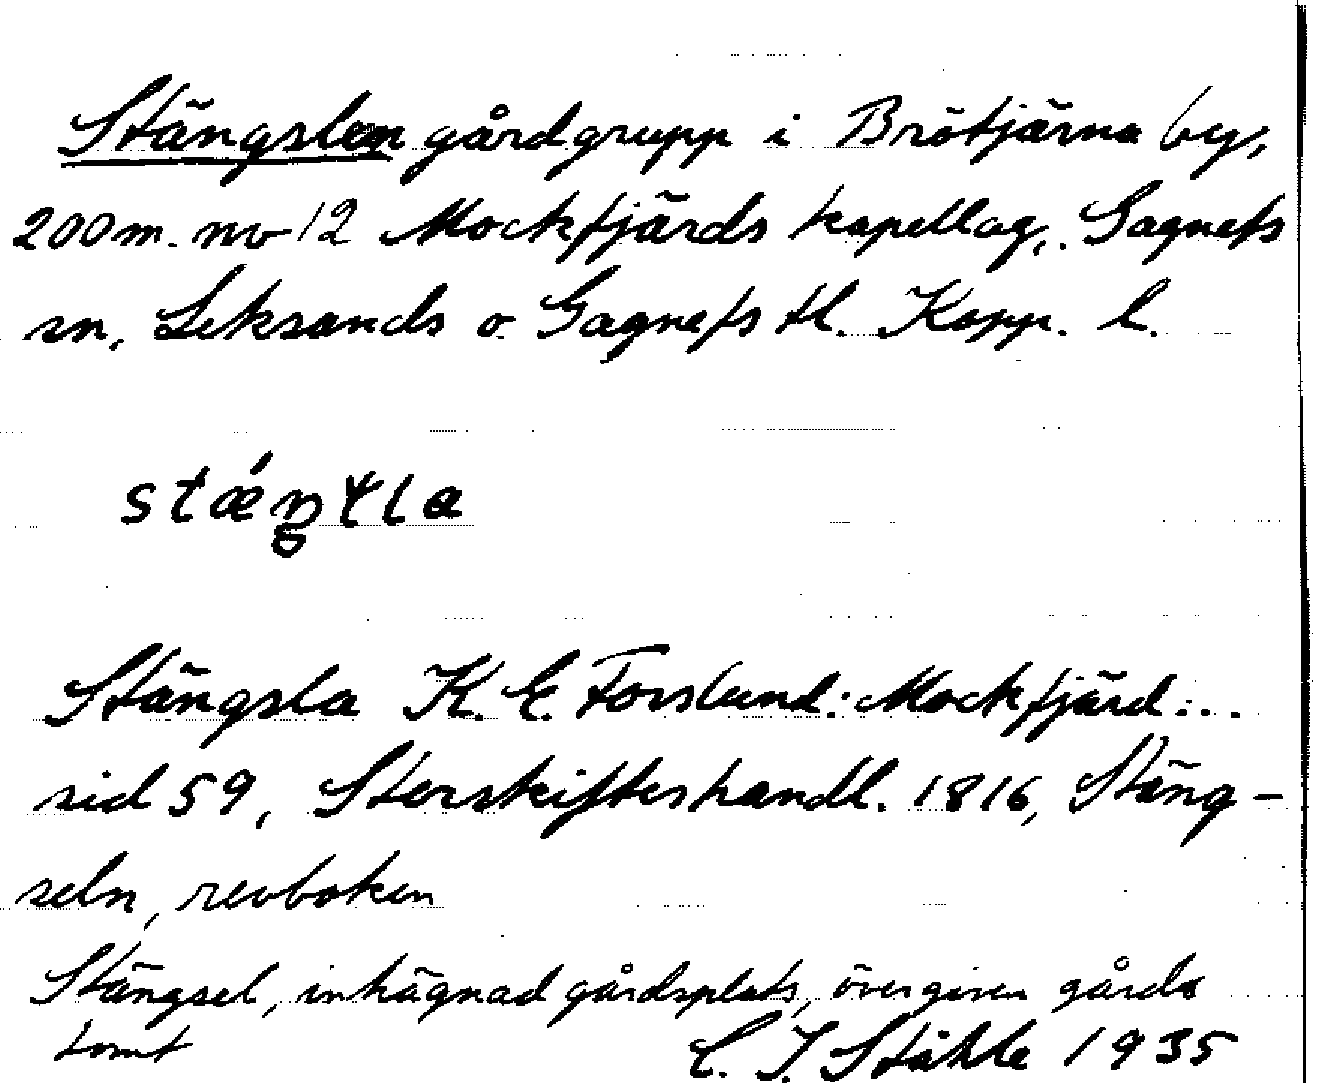 Stängslen gårdgrupp i Brötjärna by,
200 m. nv 12 Mockfjärds kapellag, Gagnefs
sn, Leksands o Gagnefs tl. Kopp. l.
Stängsla K. E. Forslund: Mockfjärd...
sid 59, Storskifteshandl. 1816, Stäng-
seln, revboken
Stängsel, inhägnad gårdsplats, övergiven gårds
tomt
C. I. Ståhle 1935